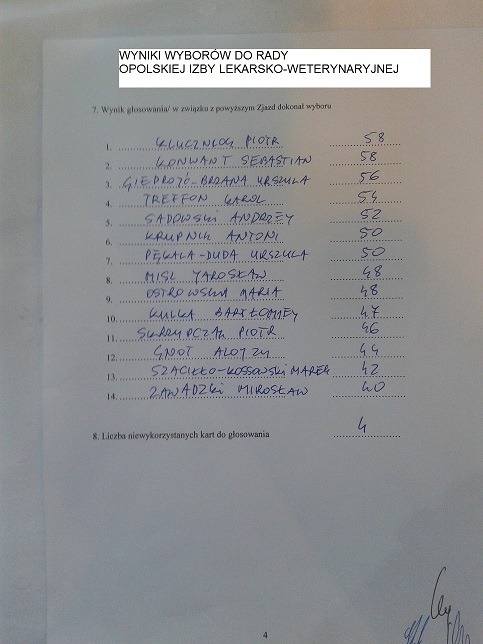 WYNIKI WYBORÓW DO RADY
OPOLSKIEJ IZBY LEKARSKO-WETERYNARYJNEJ
7. Wynik głosowania/ w związku z powyższym Zjazd dokonał wyboru
1. KLUCZNIOK PIOTR 58
2. KONWANT SEBASTIAN 58
3. GIEDROYĆ-BRDANA URSZULA 56
4. TREFFON KAROL 54
5. SADOWSKI ANDRZEY 52
6. KRUPNIK ANTONI 50
7. PĘKALA-DUDA URSZULA 50
8. MISL YAROSŁAW 48
9. OSTROWSKA MARIA 48
10. KULKA BARTŁOMIEY 47
11. SKRZYPCZAK PIOTR 46
12. GNOT ALOJZY 44
13. SZACIŁŁO-KOSSOWSKI MAREK 42
14. ZAWADZKI MIROSŁAW 40
8. Liczba niewykorzystanych kart do głosowania 4
4